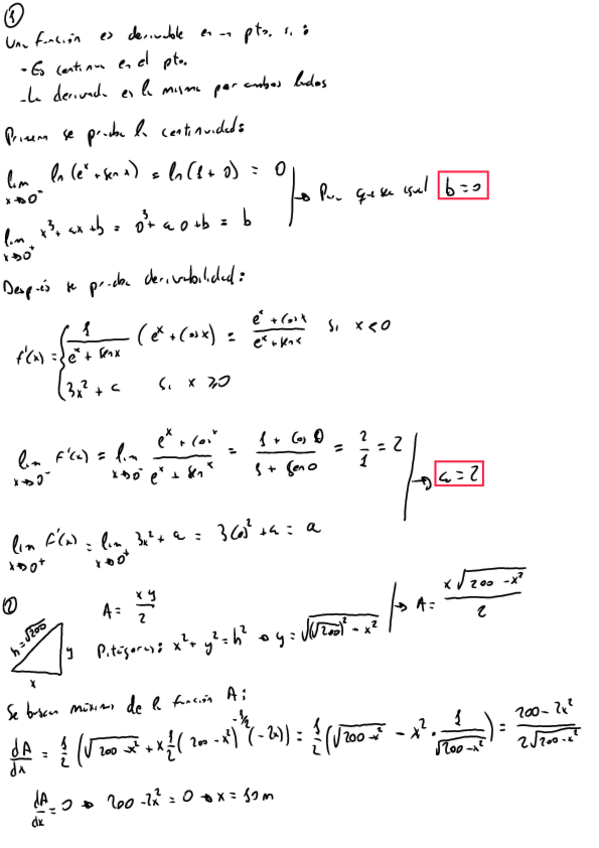 ①
Una función es derivable en un pto. si:
- Es continua en el pto.
- La derivada es la misma por ambos lados
Primero se prueba la continuidad:
lim x→0⁻ ln(eˣ + sen x) = ln(1+0) = 0
lim x→0⁺ x³ + ax + b = 0³ + a 0 + b = b
→ Para que sea igual b=0
Después se prueba derivabilidad:
f'(x) = { 1/(eˣ + sen x) (eˣ + cos x) = (eˣ + cos x)/(eˣ + sen x) si x < 0
3x² + a si x ≥ 0
lim x→0⁻ f'(x) = lim x→0⁻ (eˣ + cos x)/(eˣ + sen x) = (1 + cos 0)/(1 + sen 0) = 2/1 = 2
→ a=2
lim x→0⁺ f'(x) = lim x→0⁺ 3x² + a = 3(0)² + a = a
②
h=√200 y x
A = xy/2
Pitágoras: x² + y² = h² → y = √((√200)² - x²) → A = x√(200 - x²)/2
Se busca máximo de la función A:
dA/dx = 1/2 (√(200 - x²) + x 1/2 (200 - x²)^(-1/2) (-2x)) = 1/2 (√(200 - x²) - x² · 1/√(200 - x²)) = (200 - 2x²)/(2√(200 - x²))
dA/dx = 0 → 200 - 2x² = 0 → x = 10 m